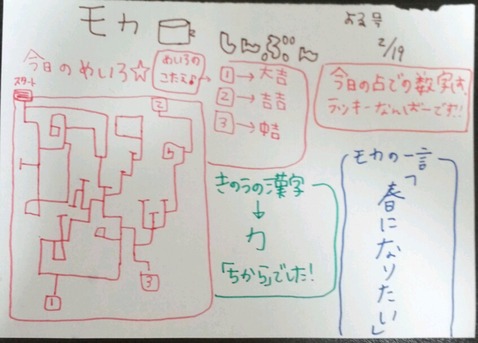 モカ しんぶん
よる号
2/19
今日のめいろ☆
めいろの
こたえ♪
1→大吉
2→吉吉
3→中吉
今日の占での数字は、
ラッキーなんばーです!!
スタート
2
1
3
きのうの漢字
↓
力
「ちから」でした!
モカの一言
「春になりたい」